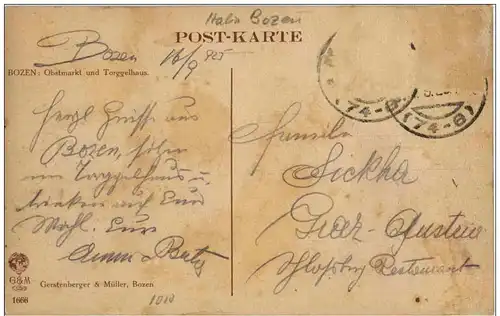 Italia Bozen
POST-KARTE
Bozen 16/9 925
BOZEN: Obstmarkt und Torggelhaus.
Herzl Grüsse aus
Bozen, sitzen
im Torggelhaus u.
trinken auf Euer
Wohl. Eure
Familie
Sickha
Graz-Austria
Schloßberg Restaurant
(74-8)
(74-8)
G&M
Gerstenberger & Müller, Bozen
1666